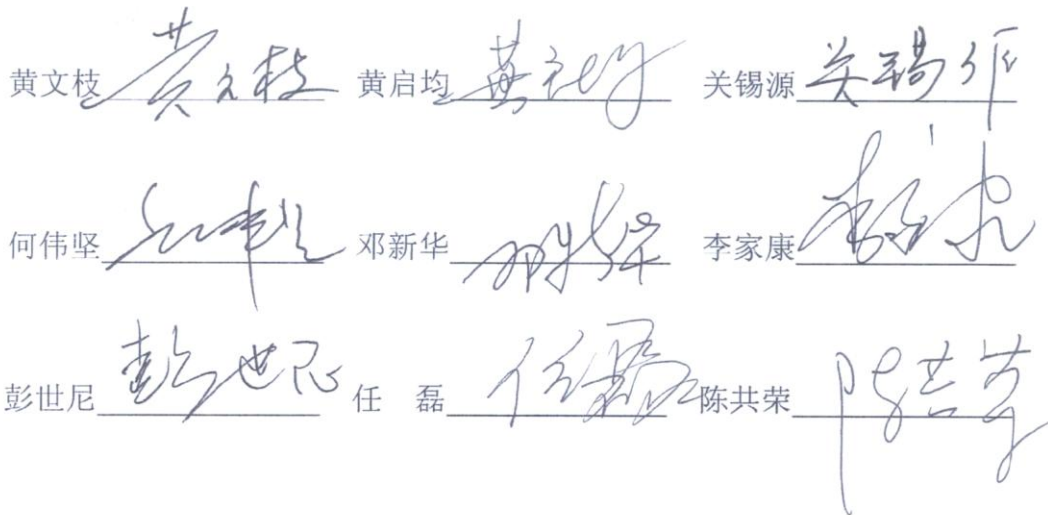 黄文枝 黄文枝 黄启均 黄启均 关锡源 关锡源
何伟坚 何伟坚 邓新华 邓新华 李家康 李家康
彭世尼 彭世尼 任 磊 任磊 陈共荣 陈共荣